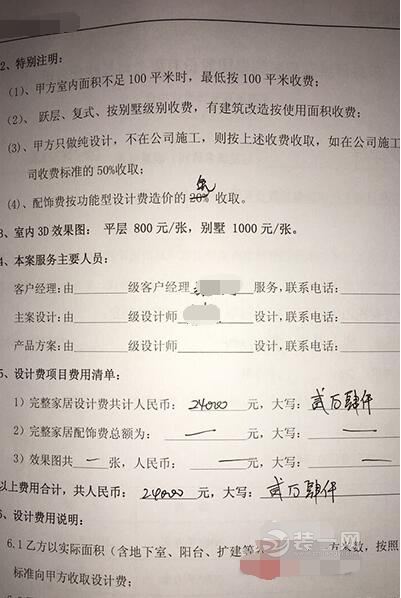 2、特别注明：
(1)、甲方室内面积不足 100 平米时，最低按 100 平米收费；
(2)、 跃层、复式、按别墅级别收费，有建筑改造按使用面积收费；
(3)、甲方只做纯设计，不在公司施工，则按上述收费收取，如在公司施工
司收费标准的 50%收取；
(4)、配饰费按功能型设计费造价的 20% 收取。
3、室内 3D 效果图： 平层 800 元/张，别墅 1000 元/张。
4、本案服务主要人员：
客户经理：由______级客户经理______服务，联系电话：______
主案设计：由______级设计师______设计，联系电话：______
产品方案：由______级设计师______设计，联系电话：______
5、设计费项目费用清单：
1）完整家居设计费共计人民币： 24000 元，大写： 贰万肆仟
2）完整家居配饰费总额为： — 元，大写： —
3）效果图共 — 张，人民币： — 元，大写： —
以上费用合计，共人民币： 24000 元，大写： 贰万肆仟
6、设计费用说明：
6.1 乙方以实际面积（含地下室、阳台、扩建等 平方米数，按照
标准向甲方收取设计费；
装一网